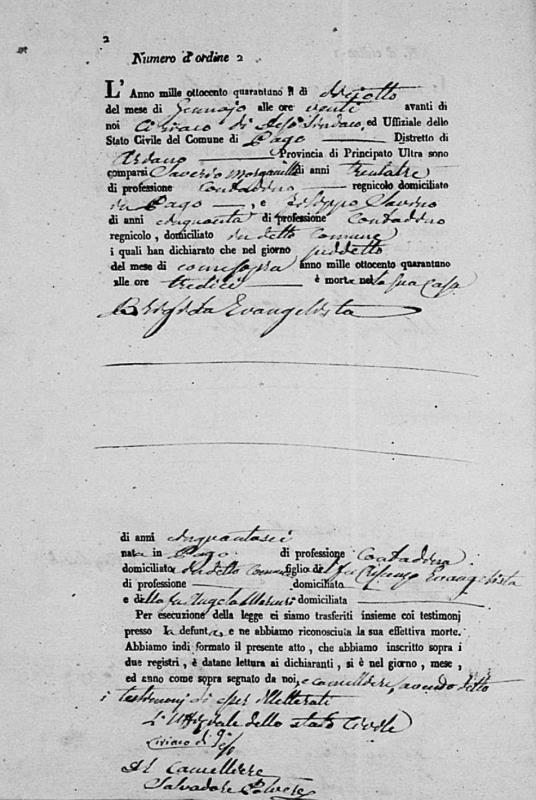 2
Numero d'ordine 2
L' Anno mille ottocento quarantuno il dì diciotto
del mese di Gennajo alle ore venti avanti di
noi Ciriaco di Sindaco, ed Uffiziale dello
Stato Civile del Comune di Pago Distretto di
Ariano Provincia di Principato Ultra sono
comparsi Saverio di anni trentatre
di professione Contadino regnicolo domiciliato
in Pago, e Filippo
di anni cinquanta di professione Contadino
regnicolo, domiciliato in detto Comune
i quali han dichiarato che nel giorno suddetto
del mese di come sopra anno mille ottocento quarantuno
alle ore tredici è morta nella sua Casa
Brigida Evangelista
di anni cinquantasei
nata in Pago di professione Contadina
domiciliata in detto Comune figlio del fu Evangelista
di professione domiciliato
e della fu Angela domiciliata
Per esecuzione della legge ci siamo trasferiti insieme coi testimonj
presso la defunta, e ne abbiamo riconosciuta la sua effettiva morte.
Abbiamo indi formato il presente atto, che abbiamo inscritto sopra i
due registri, è datane lettura ai dichiaranti, si è nel giorno, mese,
ed anno come sopra segnato da noi, e cancelliere, avendo detto
i testimonj di esser illetterati
L'Uffiziale dello stato Civile
Ciriaco di
Il Cancelliere
Salvadore